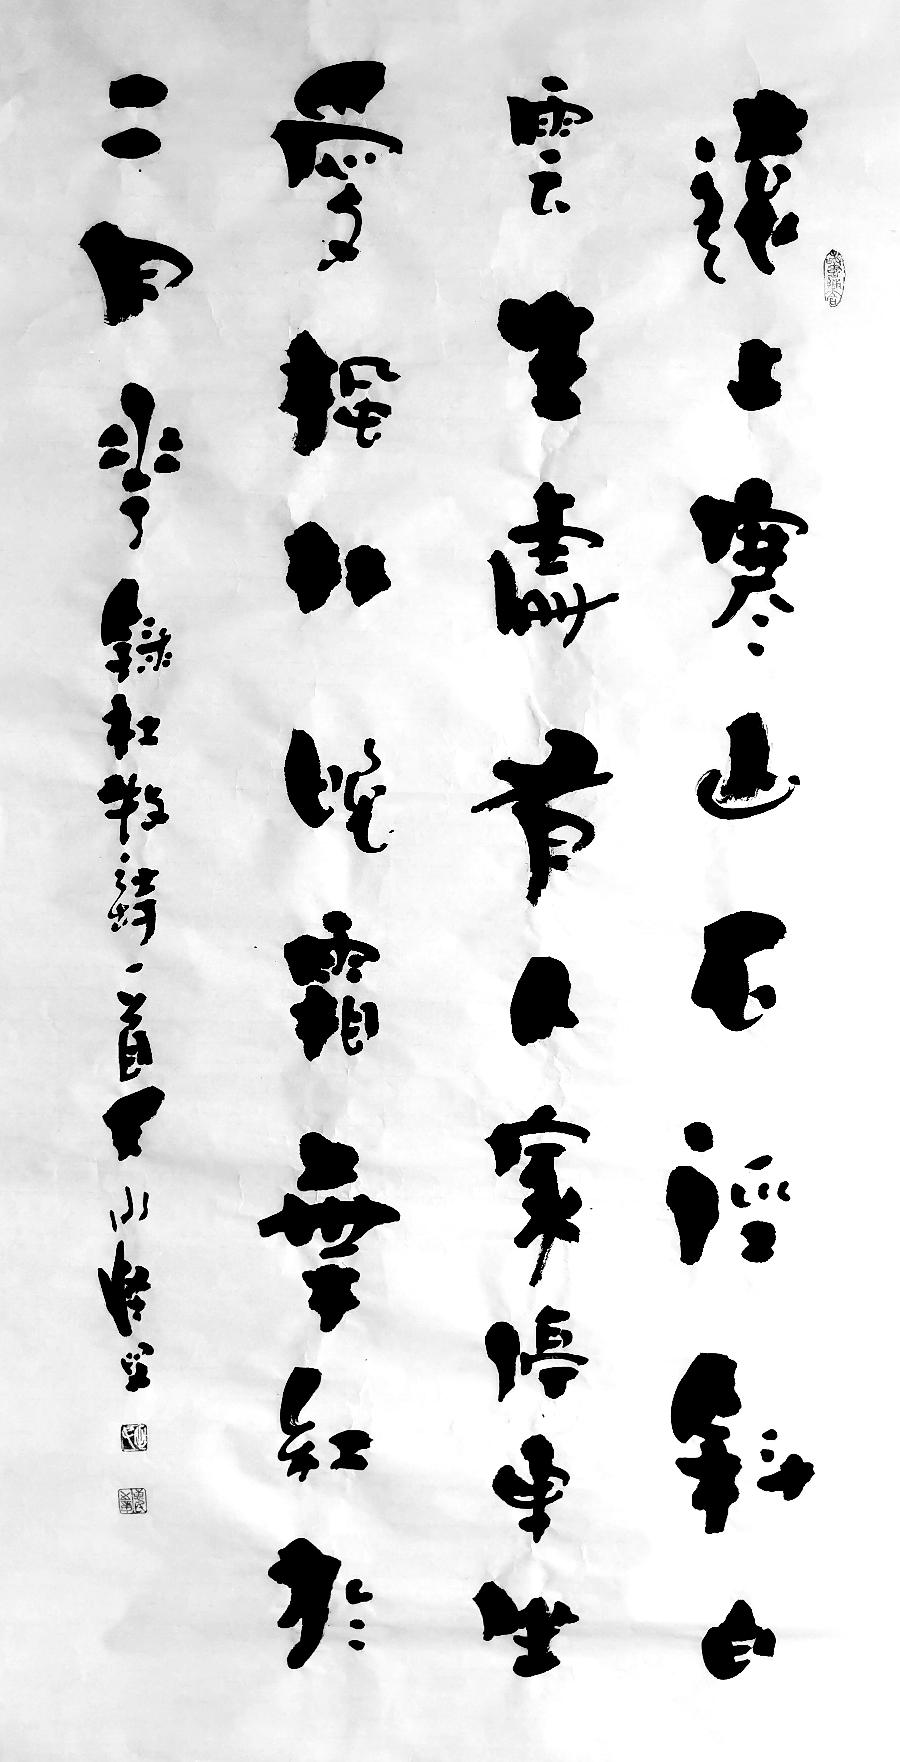 遠上寒山石徑斜白
雲生處有人家停車坐
愛楓林晚霜葉紅於
二月華錄杜牧詩一首